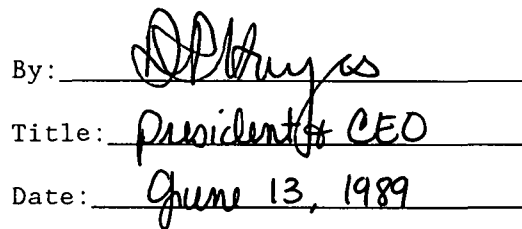 By:
Title: President & CEO
Date: June 13, 1989